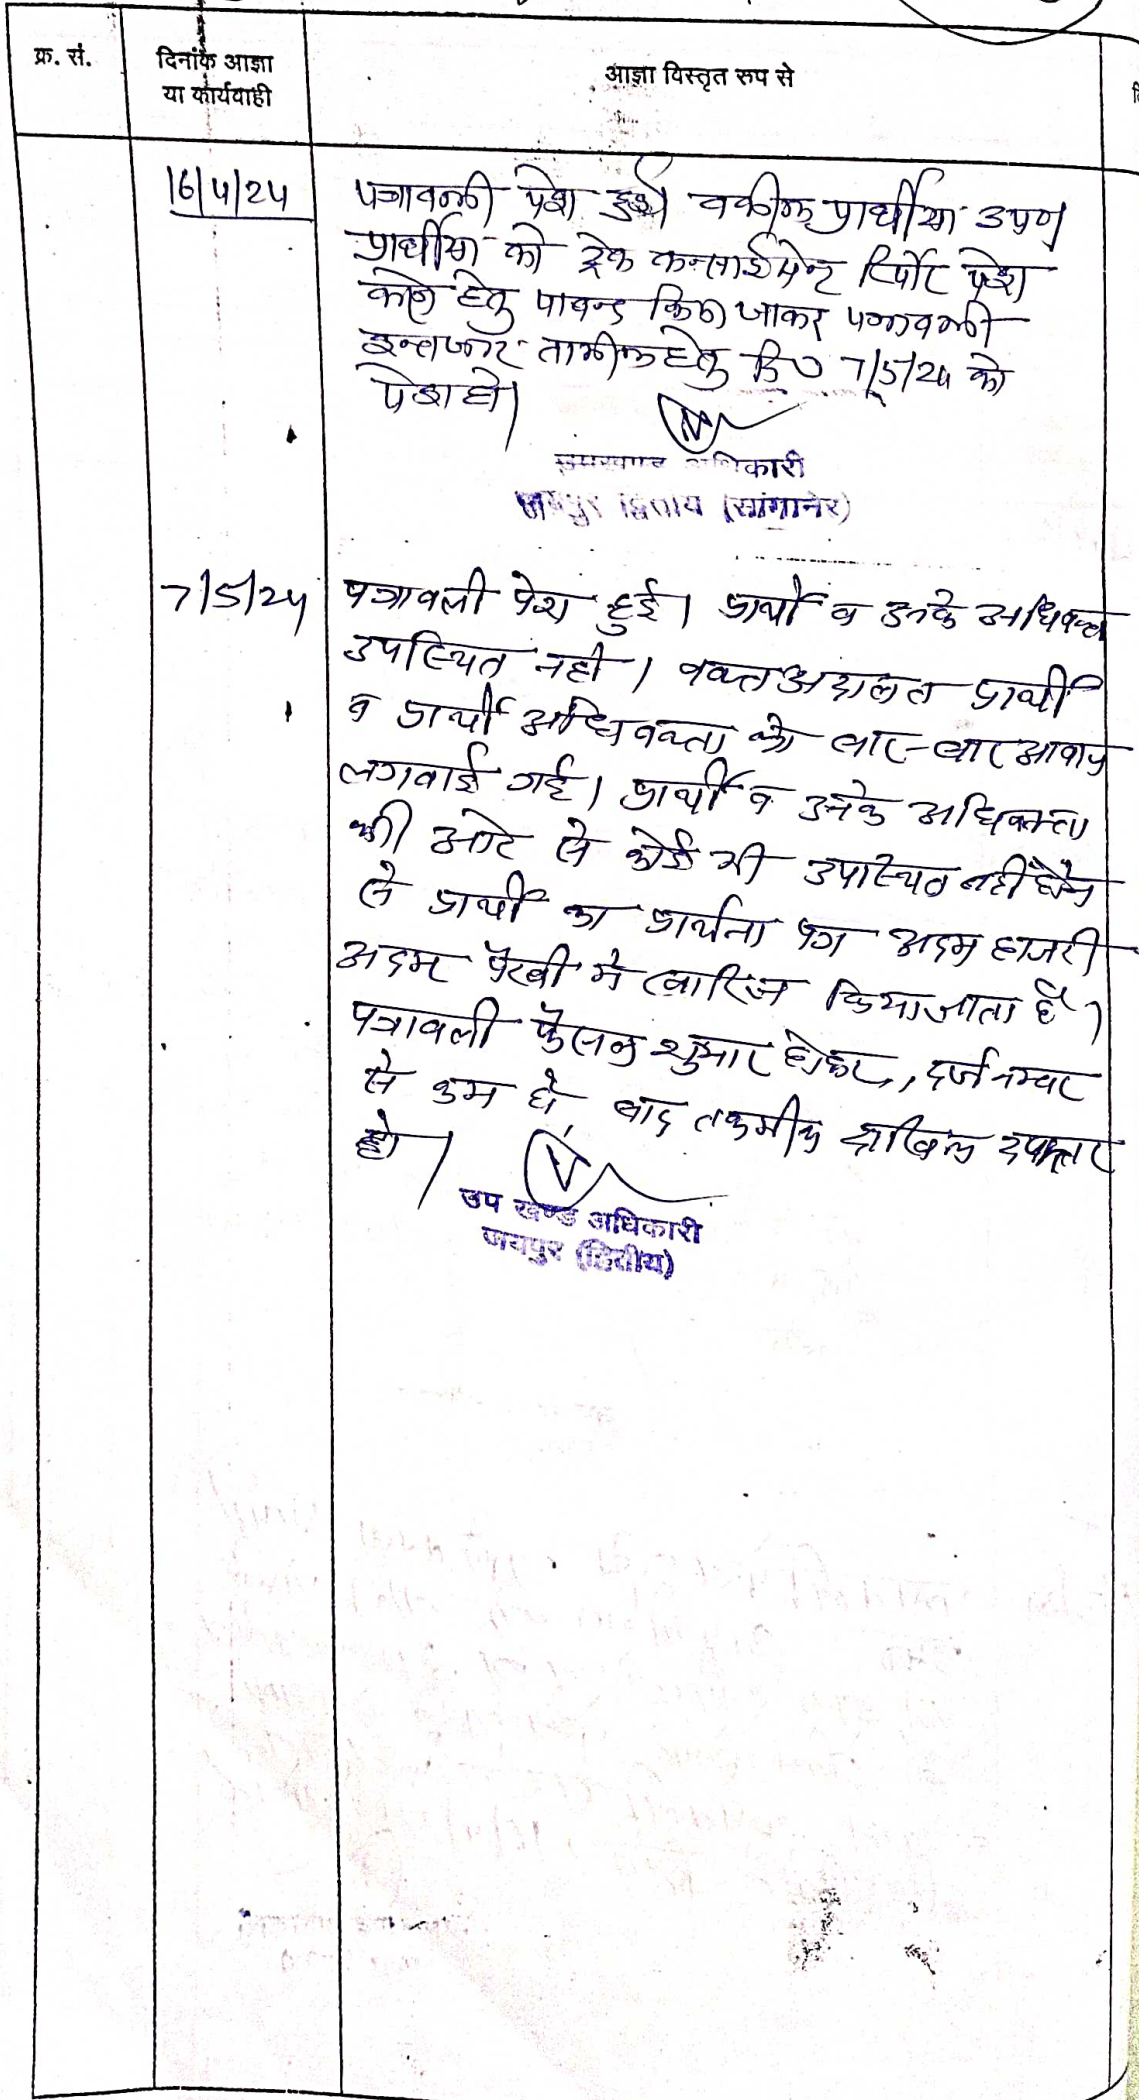 क्र. सं.
दिनांक आज्ञा
या कार्यवाही
आज्ञा विस्तृत रुप से
16/4/24
पत्रावली पेश हुई वकील प्रार्थीया उप०
प्रार्थीया को ट्रेक कन्साईमेन्ट रिर्पोट पेश
करने हेतु पाबन्द किया जाकर पत्रावली
इन्तजार तामील हेतु दि० 7/5/24 को
पेश हो।
अधिकारी
जयपुर द्वितीय (सांगानेर)
7/5/24
पत्रावली पेश हुई। प्रार्थी व उनके अधिवक्ता
उपस्थित नही। वक्त अदालत प्रार्थी
व प्रार्थी अधिवक्ता को बार-बार आवाज
लगवाई गई। प्रार्थी व उनके अधिवक्ता
की ओर से कोई भी उपस्थित नहीं होने
से प्रार्थी का प्रार्थना पत्र अदम हाजरी
अदम पैरवी मे खारिज किया जाता है।
पत्रावली फैसल शुमार होकर, दर्ज नम्बर
से कम हो, बाद तकमील दाखिल दफ्तर
हो।
उप खण्ड अधिकारी
जयपुर (द्वितीय)